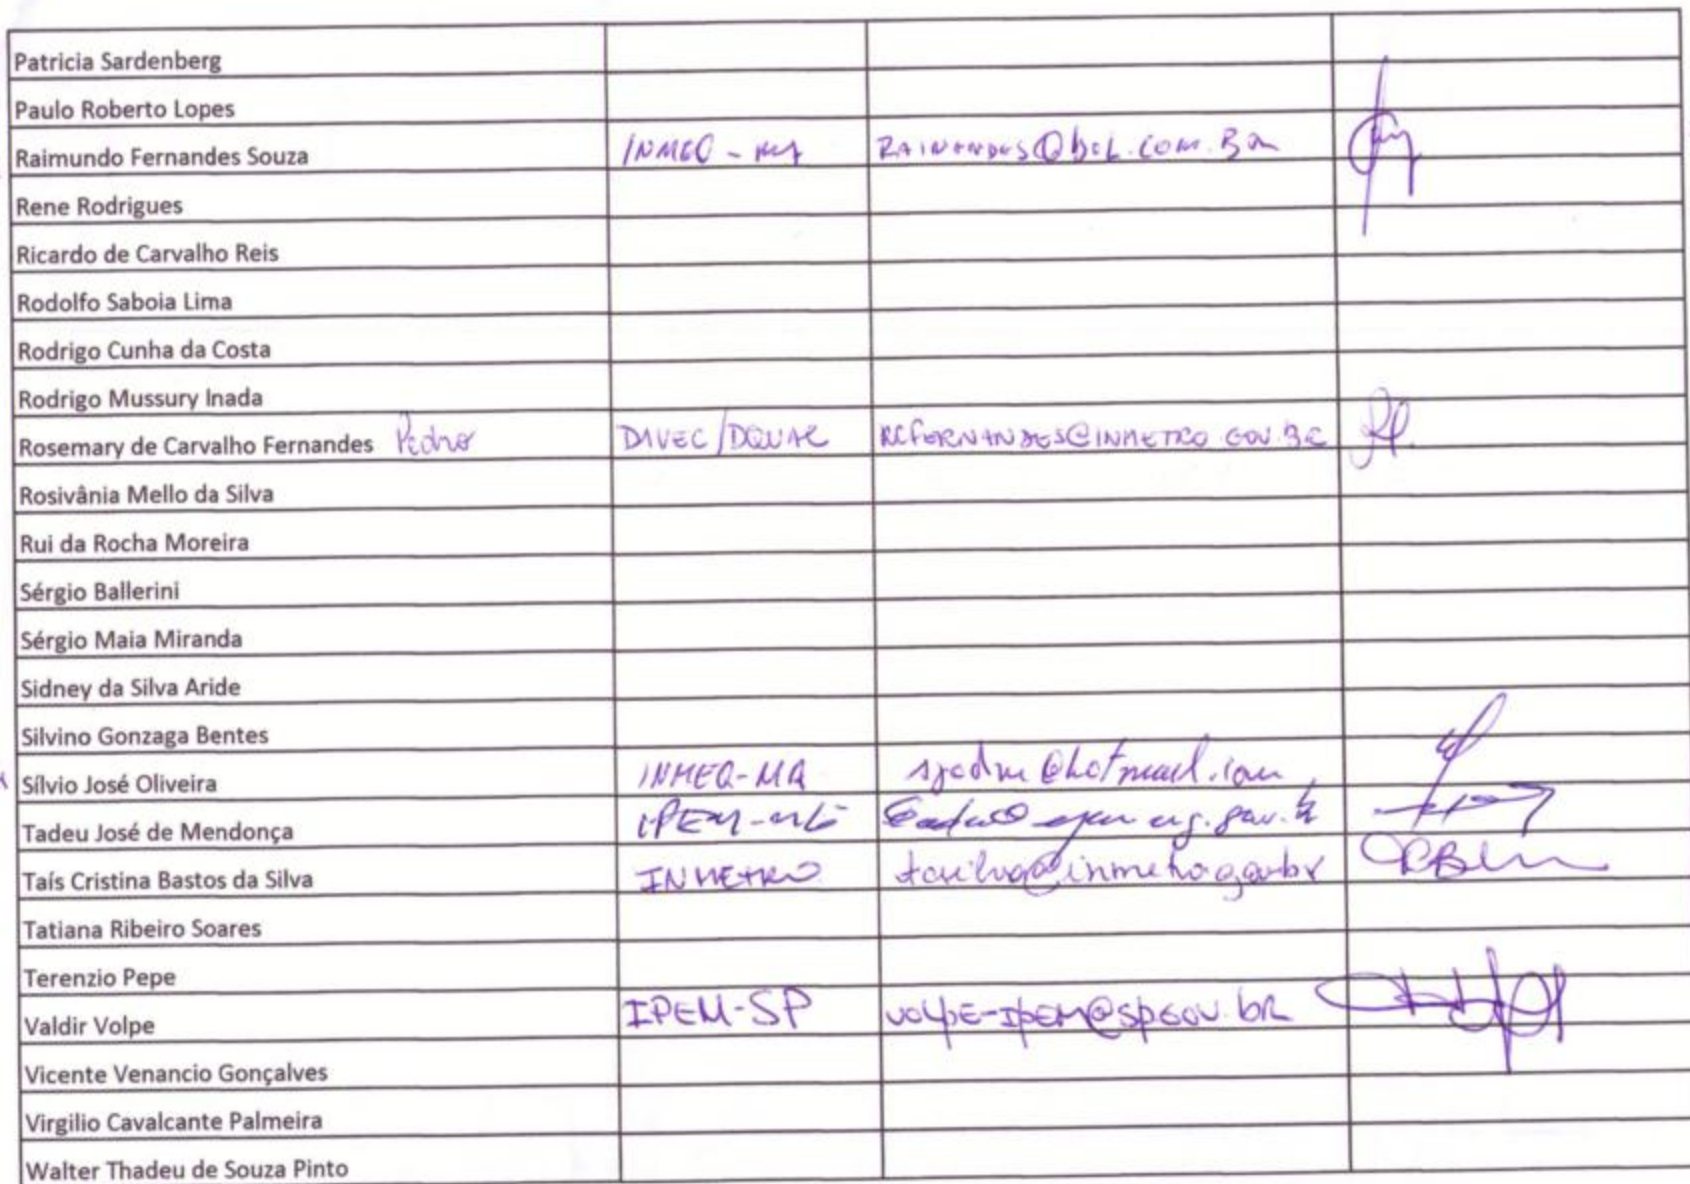 Patricia Sardenberg
Paulo Roberto Lopes
Raimundo Fernandes Souza INMEQ - MA
Rene Rodrigues
Ricardo de Carvalho Reis
Rodolfo Saboia Lima
Rodrigo Cunha da Costa
Rodrigo Mussury Inada
Rosemary de Carvalho Fernandes Pedro DIVEC/DQUAL RCFERNANDES@INMETRO.GOV.BR
Rosivânia Mello da Silva
Rui da Rocha Moreira
Sérgio Ballerini
Sérgio Maia Miranda
Sidney da Silva Aride
Silvino Gonzaga Bentes
Sílvio José Oliveira INMEQ-MA
Tadeu José de Mendonça IPEM-MG
Taís Cristina Bastos da Silva INMETRO tcsilva@inmetro.gov.br
Tatiana Ribeiro Soares
Terenzio Pepe
Valdir Volpe IPEM-SP VOLPE-IPEM@SP.GOV.bR
Vicente Venancio Gonçalves
Virgilio Cavalcante Palmeira
Walter Thadeu de Souza Pinto